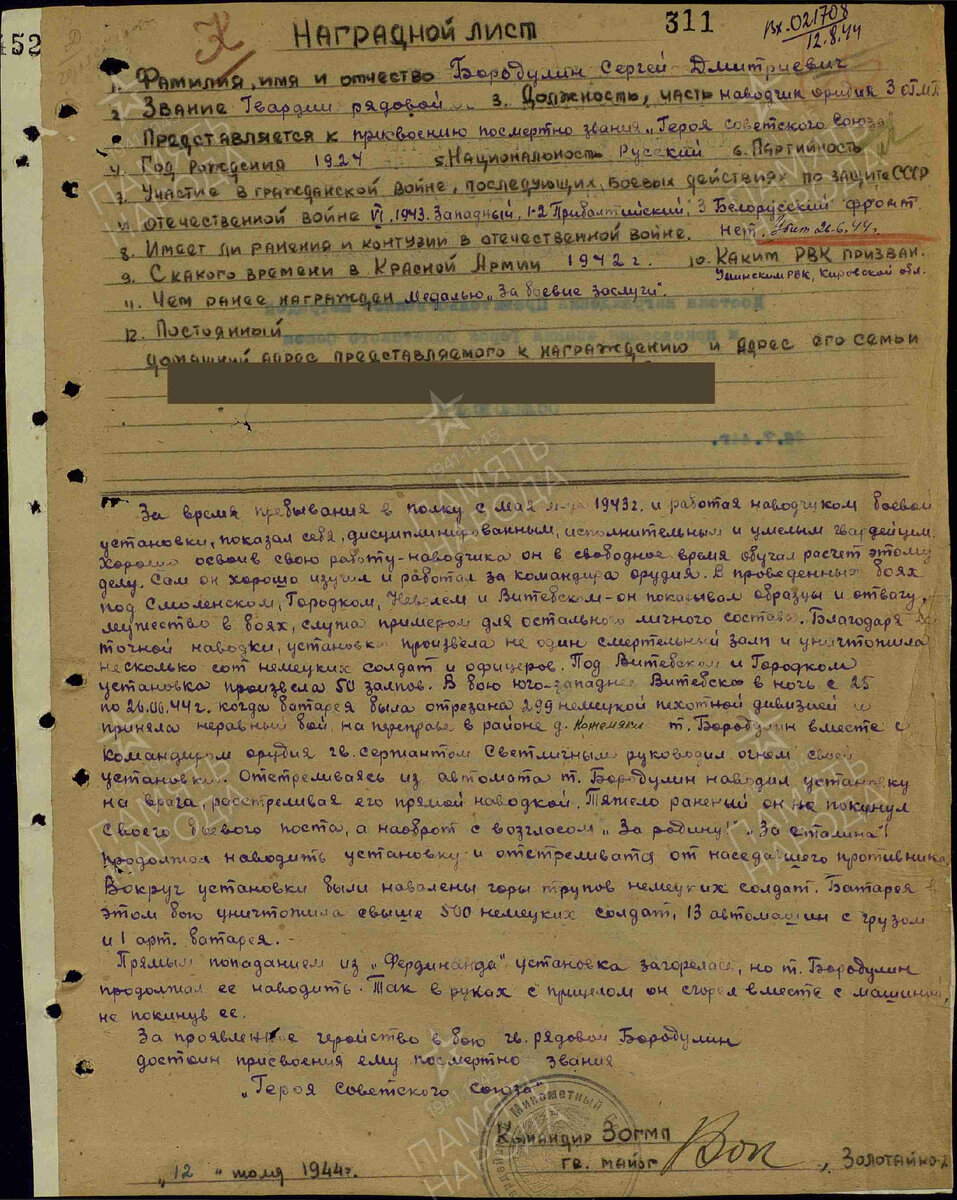 52
311
Вх. 021708
12.8.44
Наградной лист
1. Фамилия, имя и отчество Бородулин Сергей Дмитриевич
2. Звание Гвардии рядовой 3. Должность, часть наводчик орудия 3 ОГМП
Представляется к присвоению посмертно звания „Героя Советского Союза"
4. Год рождения 1924 5. Национальность Русский 6. Партийность
7. Участие в гражданской войне, последующих боевых действиях по защите СССР
и отечественной войне VI. 1943. Западный, 1-2 Прибалтийский, 3 Белорусский фронт.
8. Имеет ли ранения и контузии в отечественной войне. нет. Убит 26.6.44г.
9. С какого времени в Красной Армии 1942 г. 10. Каким РВК призван.
Унинским РВК, Кировской обл.
11. Чем ранее награжден медалью „За боевые заслуги"
12. Постоянный
домашний адрес представляемого к награждению и адрес его семьи
За время пребывания в полку с мая 1943г. и работая наводчиком боевой
установки, показал себя, дисциплинированным, исполнительным и умелым гвардейцем.
Хорошо освоив свою работу-наводчика он в свободное время обучал расчет этому
делу. Сам он хорошо изучил и работал за командира орудия. В проведенных боях
под Смоленском, Городком, Невелем и Витебском-он показывал образцы и отвагу,
мужество в боях, служа примером для остального личного состава. Благодаря его
точной наводки, установка произвела не один смертельный залп и уничтожила
несколько сот немецких солдат и офицеров. Под Витебском и Городком
установка произвела 50 залпов. В бою юго-западнее Витебска в ночь с 25
по 26.06.44г. когда батарея была отрезана 299 немецкой пехотной дивизией и
приняла неравный бой, на переправе в районе д. Кожемяки т. Бородулин вместе с
командиром орудия гв. сержантом Светличным руководил огнем своей
установки. Отстреливаясь из автомата т. Бородулин наводил установку
на врага, расстреливая его прямой наводкой. Тяжело раненый он не покинул
своего боевого поста, а наоброт с возгласом „За родину!" „За Сталина"!
продолжал наводить установку и отстреливатся от наседавшего противника
Вокруг установки были навалены горы трупов немецких солдат. Батарея в
этом бою уничтожила свыше 500 немецких солдат, 13 автомашин с грузом
и 1 арт. батарея.-
Прямым попаданием из „Фердинанда" установка загорелась, но т. Бородулин
продолжал ее наводить. Так в руках с прицелом он сгорел вместе с машиной,
не покинув ее.
За проявленное геройство в бою гв. рядовой Бородулин
достоин присвоения ему посмертно звания
„Героя Советского Союза"
Минометный
Командир 3 ОГМП
гв. майор Золотайко
„12" июля 1944г.
ПАМЯТЬ НАРОДА
1941-1945